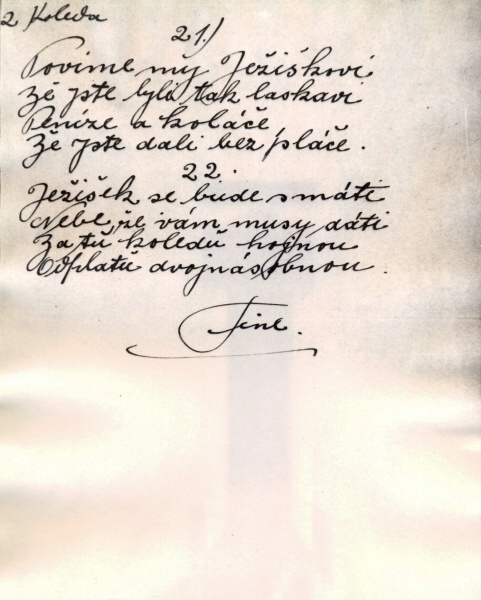 2 Koleda
21./
Povíme my Ježiškovi
Žě jste byli tak laskavi
Peníze a koláče,
Žě jste dali bez pláče.
22.
Ježíšek se bude smáti
Nebe že vám musy dáti
Za tů koledů hojnou
Odplatů dvojnásobnou.
Fine.